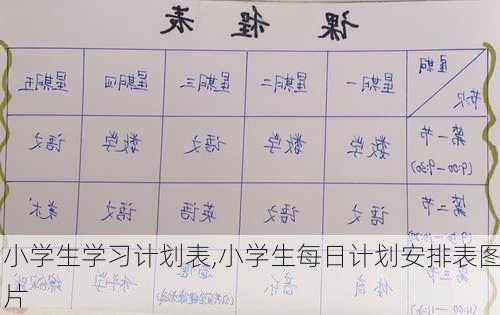 课程表
星期 星期一 星期二 星期三 星期四 星期五
节次
第一节 数学 数学 语文 数学 语文
(9:00—9:30)
第二节 语文 语文 英语 语文 美术
体育 音乐
小学生学习计划表,小学生每日计划安排表图
片